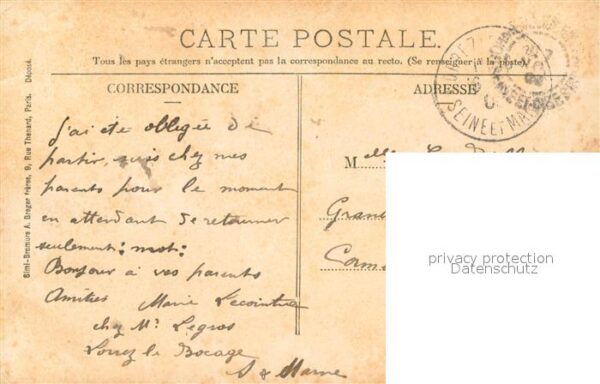 CARTE POSTALE.
Tous les pays étrangers n'acceptent pas la correspondance au recto. (Se renseigner à la poste)
CORRESPONDANCE
J'ai été obligée de
partir, suis chez mes
parents pour le moment
en attendant de retourner
seulement: mot:
Bonjour à vos parents
Amitiés Marie Lecointre
chez Mr Legros
Lorrez le Bocage
S & Marne
ADRESSE
Melle
Grand
SEINE ET MARNE
Simi-Bromure A. Breger frères, 9, Rue Thenard, Paris. Déposé.
privacy protection
Datenschutz